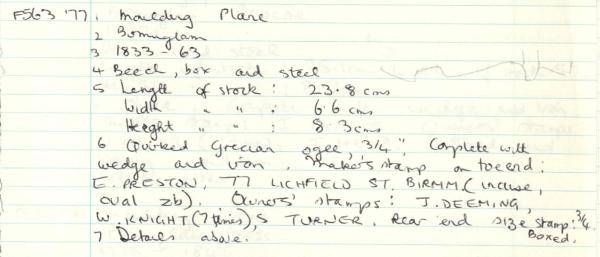 F563 '77. 1 Moulding Plane
2 Birmingham
3 1833 - 63
4 Beech, box and steel
5 Length of stock : 23.8 cms
Width " " : 6.6 cms
Height " " : 8.3 cms
6 Quirked Grecian ogee, 3/4". Complete with
wedge and iron. Maker's stamp on toe end:
E. PRESTON, 77 LICHFIELD ST. BIRMM (incuse,
oval zb). Owners' stamps: J. DEEMING,
W. KNIGHT (7 times), S TURNER. Rear end size stamp: 3/4
7 Details above. Boxed.